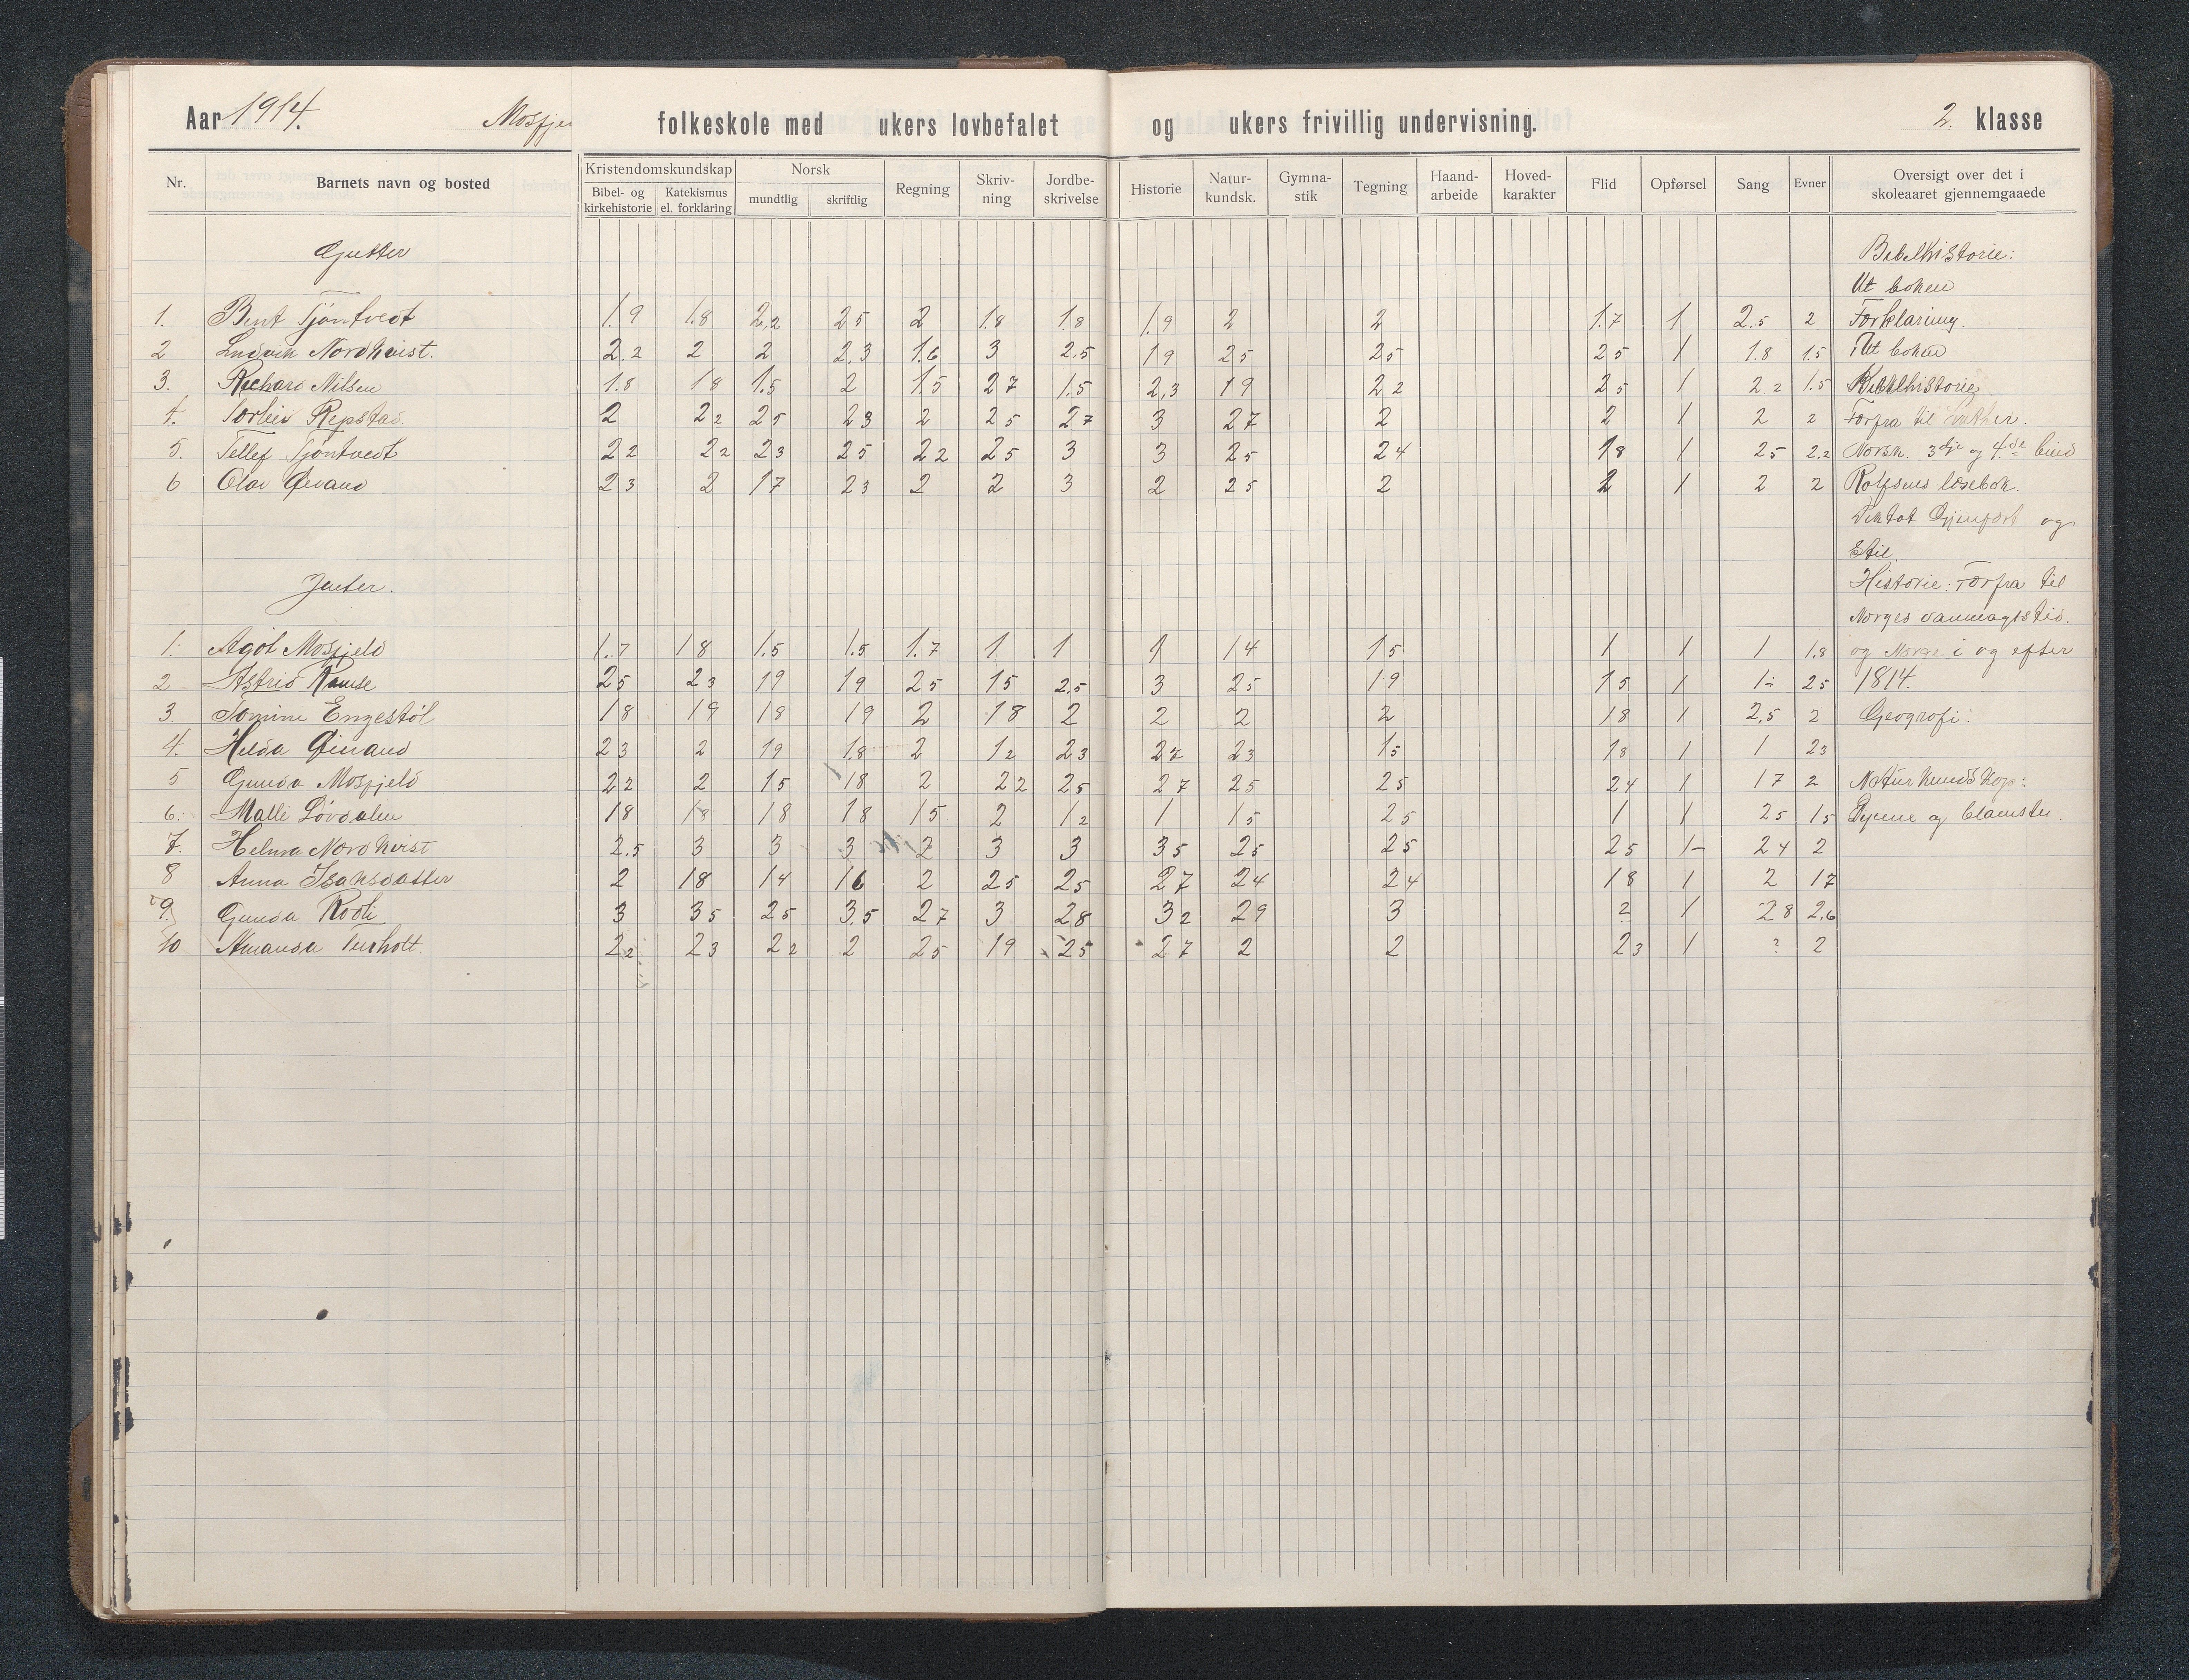 Aar 1914. Mosfje folkeskole med ukers lovbefalet og ukers frivillig undervisning. 2. klasse
Nr. Barnets navn og bosted Kristendomskundskap Bibel- og kirkehistorie Katekismus el. forklaring Norsk mundtlig skriftlig Regning Skriv-ning Jordbe-skrivelse Historie Natur-kundsk. Gymna-stik Tegning Haand-arbeide Hoved-karakter Flid Opførsel Sang Evner Oversigt over det i skoleaaret gjennemgaaede
Gutter Bibelhistorie:
Ut boken
1. Bent Tjøntvedt 1.9 1.8 2,2 25 2 1.8 1.8 1.9 2 2 1.7 1 2.5 2 Forklaring.
2 Ludvik Nordkvist. 2.2 2 2 2,3 1.6 3 2,5 19 25 25 25 1 1.8 1.5 Ut boken
3. Richard Nilsen 1.8 18 1.5 2 1.5 27 1.5 2,3 19 22 25 1 22 1.5
4. Torleiv Repstad. 2 22 25 23 2 25 27 3 27 2 2 1 2 2 Forfra til
5. Tellef Tjøntvedt 22 22 23 25 22 25 3 3 25 24 18 1 25 2.2 Norsk. 3dje og 4.de bind
6 Olav Øivand 23 2 17 23 2 2 3 2 25 2 2 1 2 2 Rolfsens læsebok.
Diktat Gjenfort og
Stil
Jenter. Historie: Forfra til
Norges vanmagtstid.
1. Agot Mosfjeld 1.7 18 1.5 1.5 1.7 1 1 1 14 15 1 1 1 1.8 og Norge i og efter
2 Astrid Ramse 25 23 19 19 25 15 2,5 3 25 19 15 1 1- 25 1814.
3. Tomine Engestøl 18 19 18 19 2 18 2 2 2 2 18 1 2,5 2 Geografi:
4. Hilda Øivand 23 2 19 1.8 2 12 23 27 23 15 18 1 1 23
5 Gunda Mosfjeld 22 2 15 18 2 22 25 27 25 25 24 1 17 2 Naturkundskap:
6. Malli Løvdalen 18 18 18 18 15 2 12 1 15 25 1 1 25 15 Dyrene og blomster.
7. Helma Nordkvist 2.5 3 3 3 2 3 3 35 25 25 25 1- 24 2
8 Anna Isaksdatter 2 18 14 16 2 25 25 27 24 24 18 1 2 17
9. Gunda Rodli 3 35 25 3.5 27 3 28 32 29 3 2 1 28 2,6
10 Amanda 22 23 22 2 25 19 25 27 2 2 23 1 ? 2